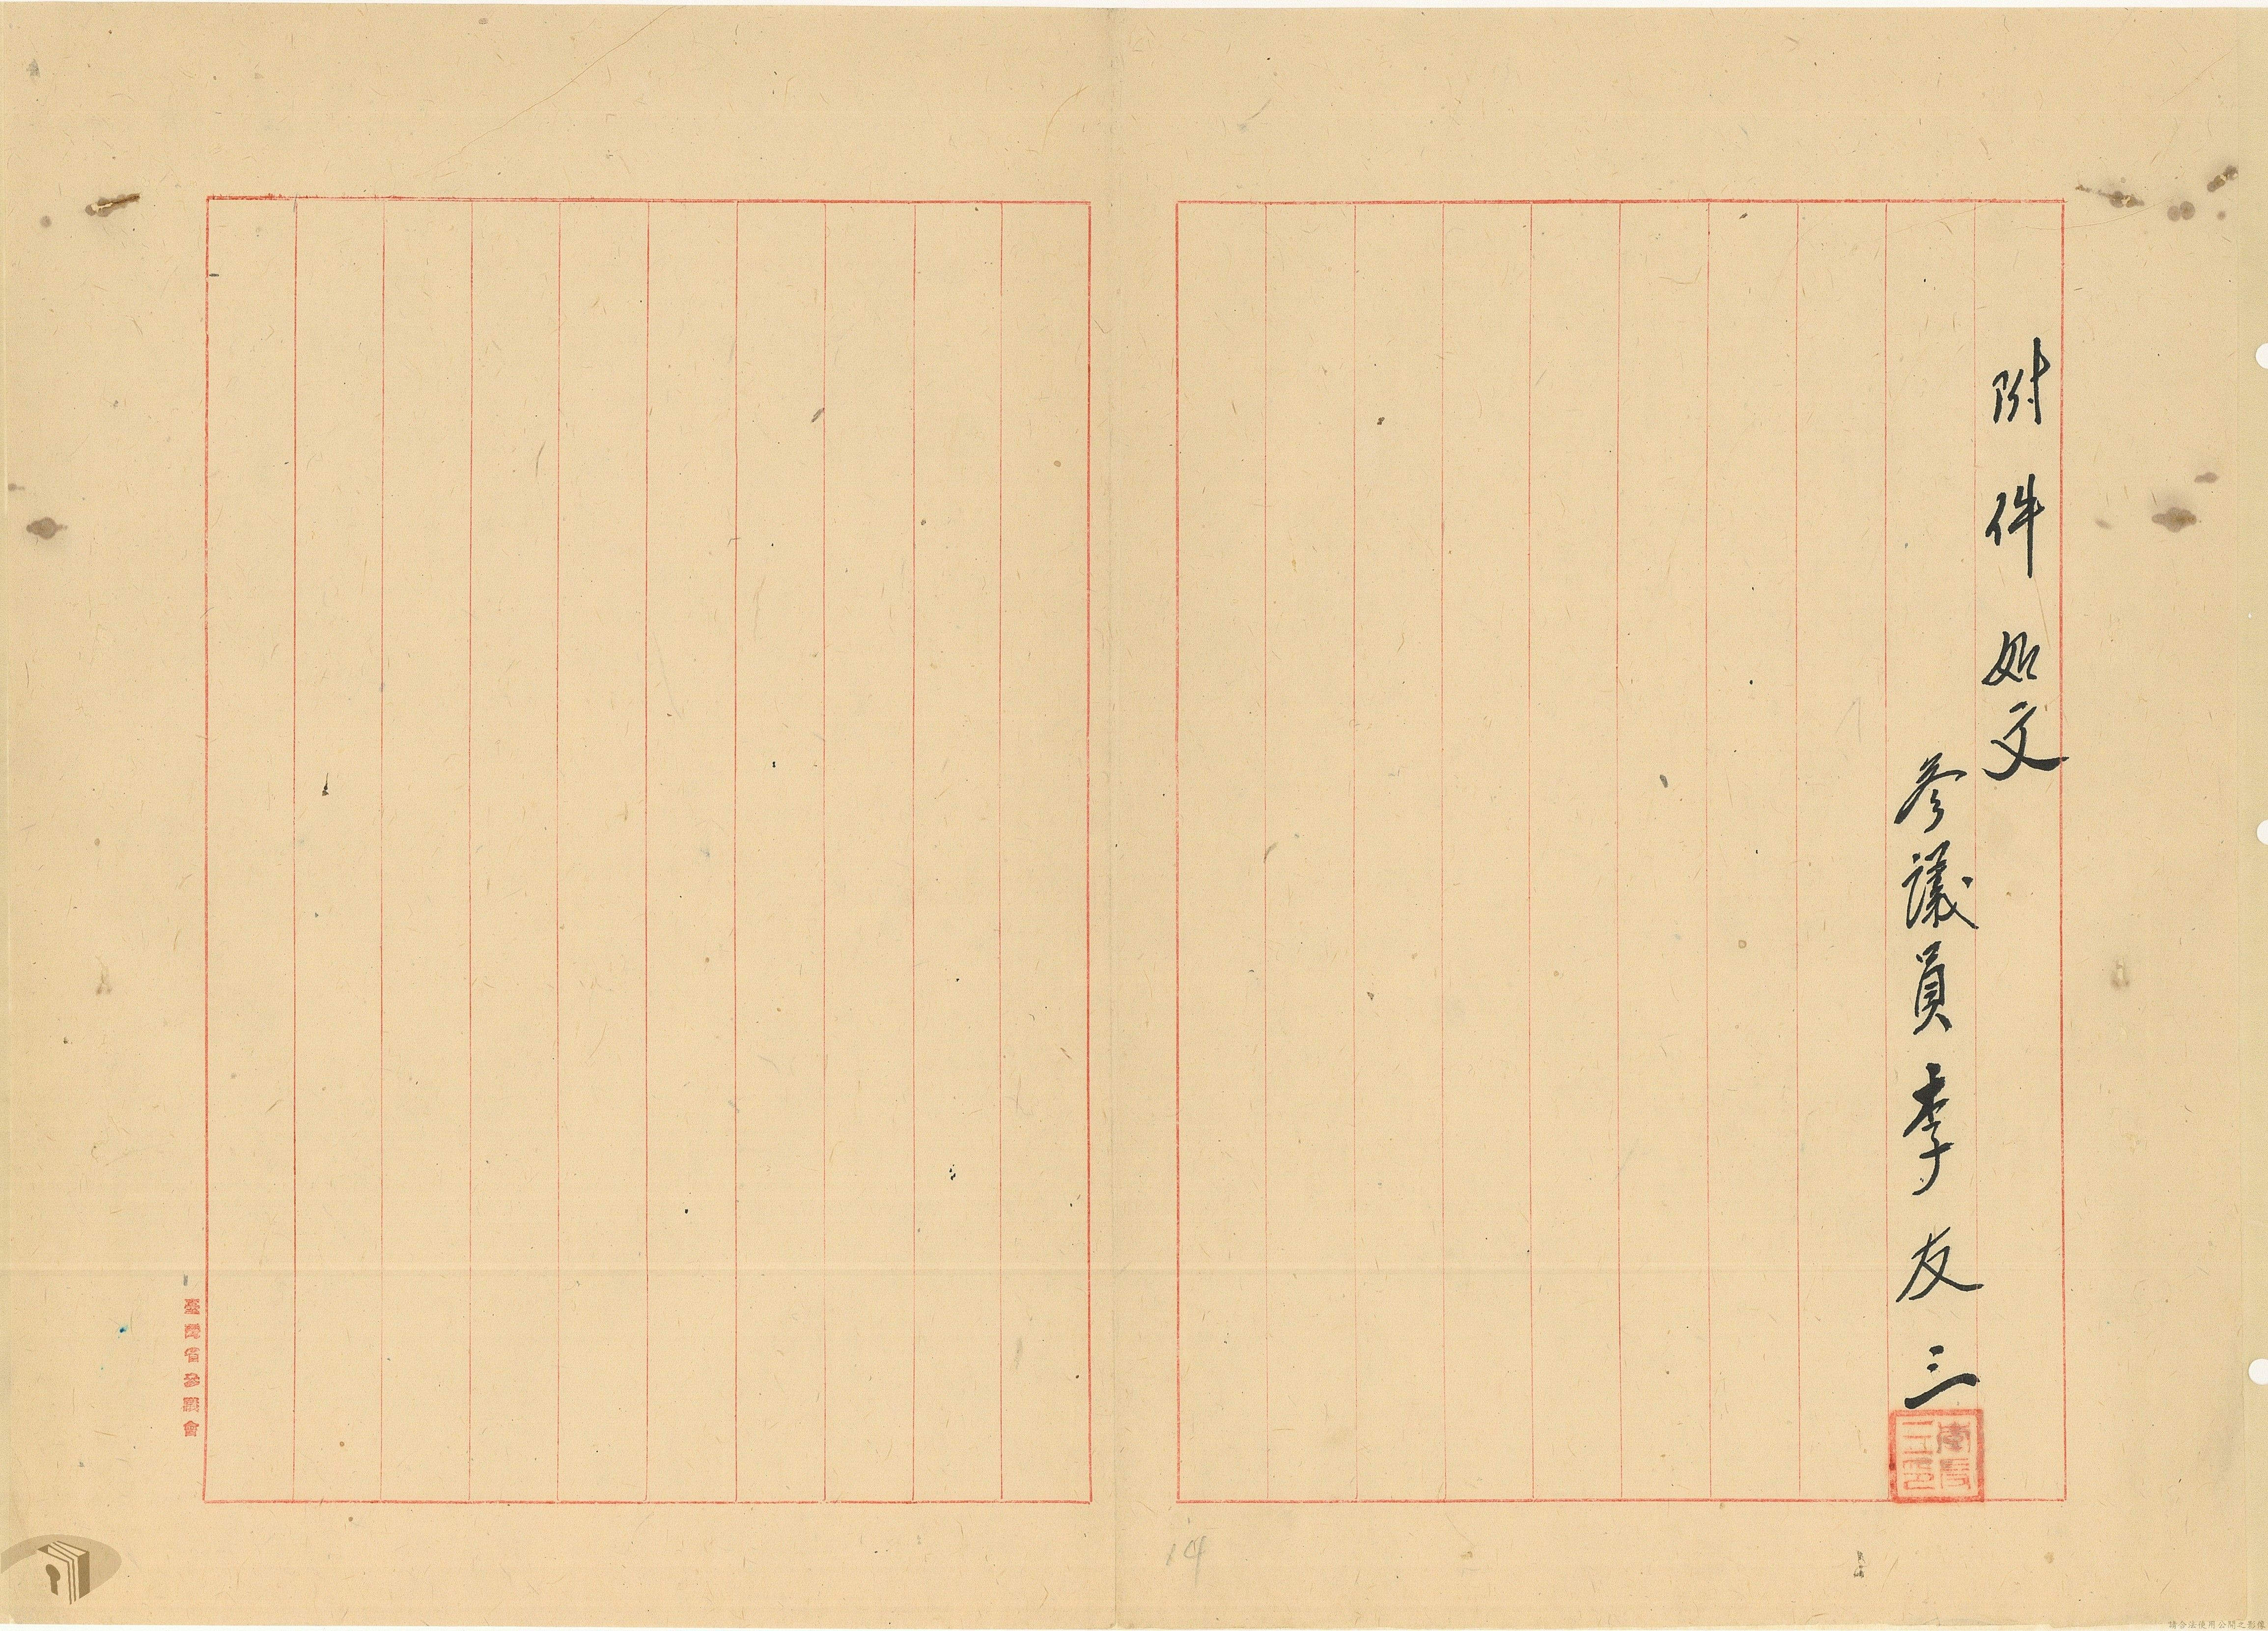 附件如文
參議員李友三
李友三印
臺灣省參議會
14
請合法使用公開之影像